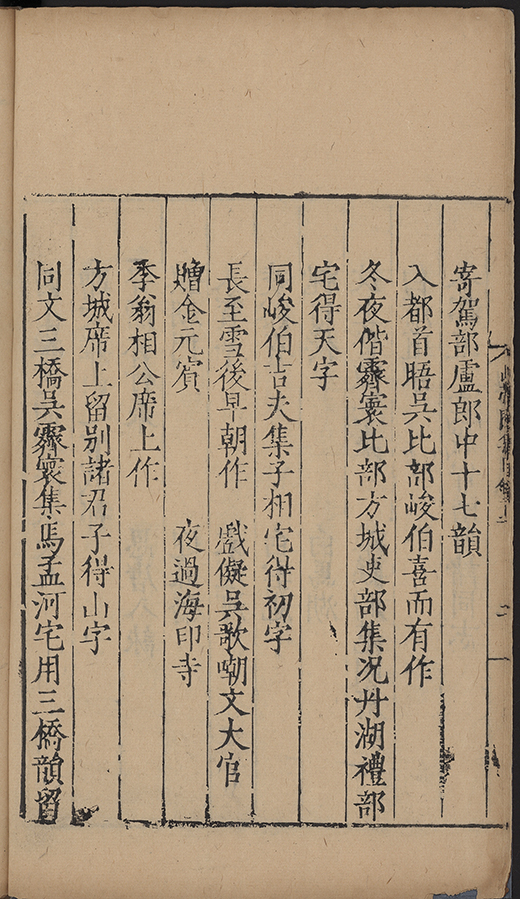 寄駕部盧郎中十七韻
入都首晤吳比部峻伯喜而有作
冬夜偕霽寰比部方城吏部集况丹湖禮部
宅得天字
同峻伯吉夫集子相宅得初字
長至雪後早朝作 戲儗吳歌嘲文大官
贈金元賓 夜過海印寺
季翁相公席上作
方城席上留別諸君子得山字
同文三橋吳霽寰集馬孟河宅用三橋韻留